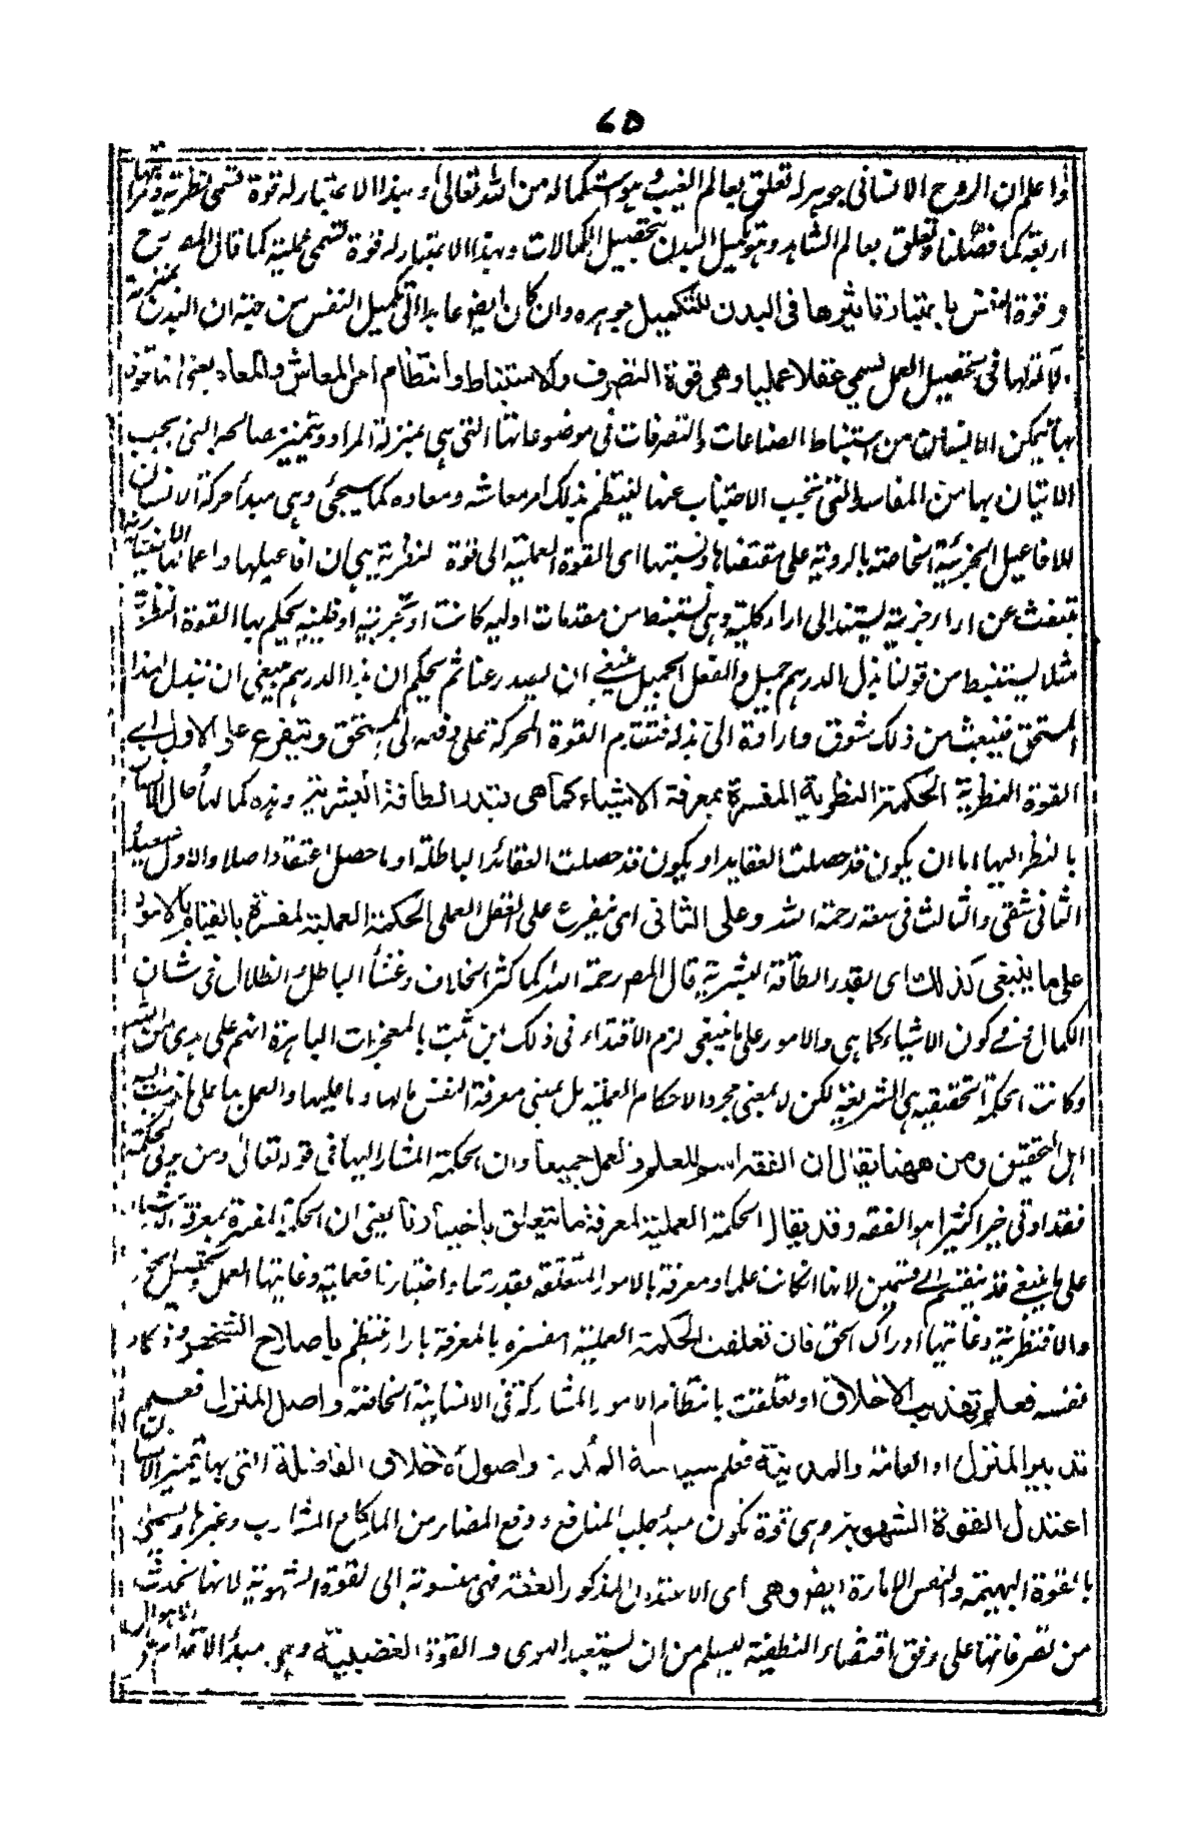 ٤٥
واعلم ان الروح الانسانى جوهر له تعلق بعالم الغيب وهو استكماله من الله تعالى وبهذا الاعتبار له قوة تسمى نظرية ومراتبها
اربعة كما فصلنا وتعلق بعالم الشاهد وهو تكميل البدن بتحصيل الكمالات وبهذا الاعتبار له قوة تسمى عملية كما قال المص رح
وقوة النفس باعتبار تاثيرها فى البدن للتكميل جوهره وان كان ايضا عايدا الى تكميل النفس من حيث ان البدن بمنزلة
آلة لها فى تحصيل العمل تسمى عقلا عمليا وهى قوة التصرف والاستنباط وانتظام امر المعاش والمعاد يعنى انها قوة
بها يتمكن الانسان من استنباط الصناعات والتصرفات فى موضوعاتها التى هى بمنزلة المواد وتميز مصالحه التى يجب
الاتيان بها من المفاسد التى يجب الاجتناب عنها لينتظم بذلك امر معاشه ومعاده كما سيجئ وهى مبدأ حركة الانسان
للافاعيل الجزئية الخاصة بالروية على مقتضاها ونسبتها اى القوة العملية الى قوة النظرية هى ان افاعيلها واعمالها الاختيارية
تنبعث عن اراء جزئية يستند الى اراء كلية وهى تستنبط من مقدمات اولية كانت او تجربية او ظنية يحكم بها القوة النظرية
مثلا يستنبط من قولنا بذل الدرهم جميل والفعل الجميل ينبغى ان يصدر عنا ثم يحكم ان هذا الدرهم ينبغى ان نبذل لهذا
المستحق فينبعث من ذلك شوق وارادة الى بذله فتقدم القوة المحركة على دفعه الى المستحق ويتفرع على الاول اے
القوة النظرية الحكمة النظرية المفسرة بمعرفة الاشياء كما هى بقدر الطاقة البشرية وهذه كمالها حال الانسان
بالنظر اليها اما ان يكون قد حصلت العقايد او يكون قد حصلت العقائد الباطلة او ما حصل اعتقاد اصلا والاول سعيد
الثانى شقى والثالث فى سعة رحمة الله وعلى الثانى اى يتفرع على العقل العملى الحكمة العملية المفسرة بالقيام بالامور
على ما ينبغى كذلك اى بقدر الطاقة البشرية قال المص رحمه الله لما كثر الخلاف وغشأ الباطل والظلال فى شان
الكمال فى كون الاشياء كما هى والامور على ما ينبغى لزم الاقتداء فى ذلك بمن ثبت بالمعجزات الباهرة انهم على هدى من الله
وكانت الحكمة الحقيقية هى الشريعة لكن لا بمعنى مجرد الاحكام العملية بل بمعنى معرفة النفس مالها وما عليها والعمل بها على ما ذهب اليه
اهل التحقيق ومن ههنا يقال ان الفقه اسم للعلم والعمل جميعا وان الحكمة المشار اليها فى قوله تعالى ومن يؤتى الحكمة
فقد اوتى خيرا كثيرا هو الفقه وقد يقال الحكمة العملية لمعرفة ما يتعلق باختيارنا يعنى ان الحكمة المفسرة بمعرفة الاشياء
على ما ينبغى قد ينقسم الى قسمين لانها ان كانت علما ومعرفة بالامور المتعلقة بقدرتنا واختيارنا فعملية وغايتها العمل وتحصيل الخير
والا فنظرية وغايتها ادراك الحق فان تعلقت الحكمة العملية المفسرة بالمعرفة باراء ينتظم باصلاح الشخص وذكاء
نفسه فعلم تهذيب الاخلاق او تعلقت بانتظام الامور المشاركة فى الانسانية الخاصة واصل المنزل فعلم
تدبير المنزل او العامة والمدينة فعلم سياسة المدينة واصول الاخلاق الفاضلة التى بها يتميز الانسان
اعتدال القوة الشهوية وهى قوة تكون مبدأ جلب المنافع ودفع المضار من الماكل والمشارب وغيرها وتسمى
بالقوة البهيمية والنفس الامارة ايضا وهى اى الاعتدال المذكور العفة فهى منسوبة الى القوة الشهوية لانها تحدث
من تصرفاتها على وفق اقتضاء النطقية ليسلم من ان يستعبد الهوى والقوة الغضبية وهى مبدأ الاقدام على الاهوال